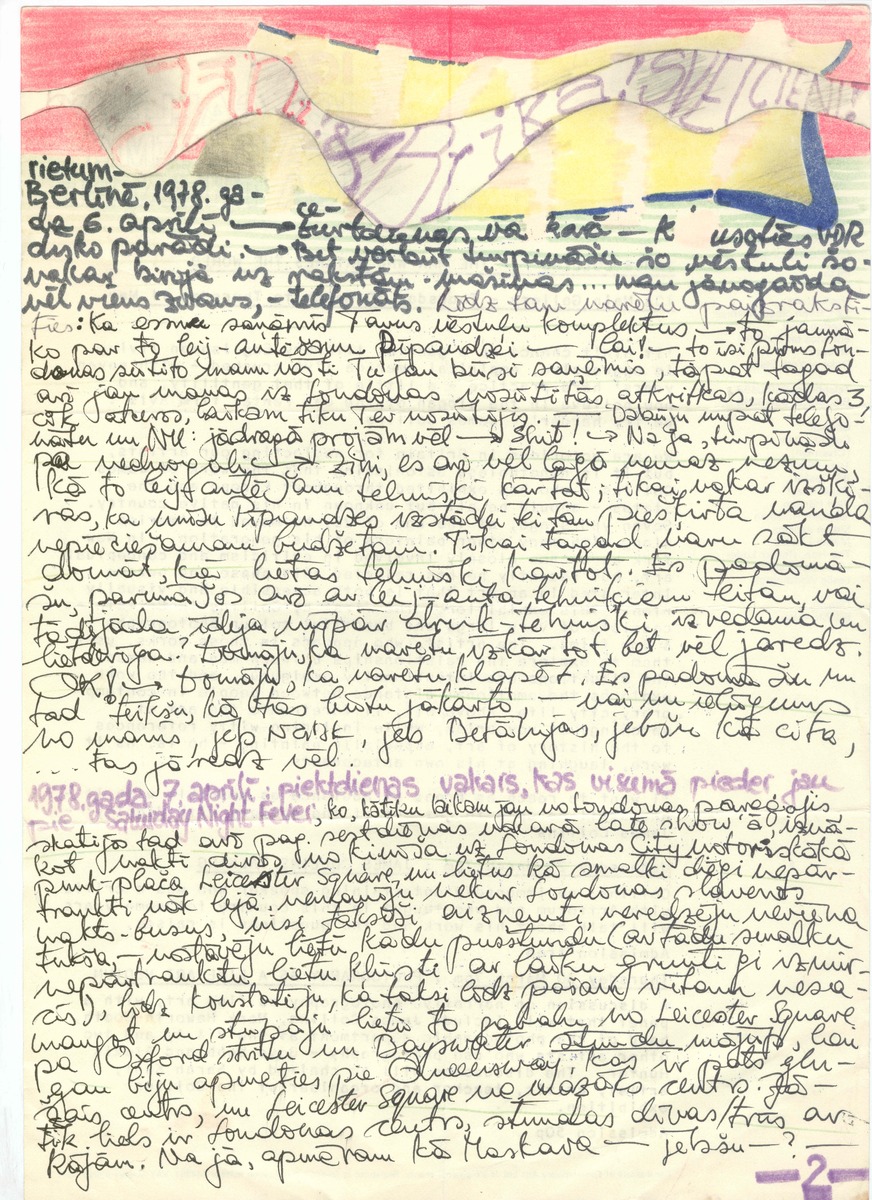 Brika! SVEICIENI!
rietum-
Berlīnē, 1978. ga-
da 6. aprīlī → ce-
turtdienas va karā — k
disko parādi. → Bet varbūt turpināšu šo vēstuli šo-
vakar birojā uz rakstām-mašīnas... man jānogaida
vēl viens zvans, – telefonāts. Līdz tam varētu pajoraksti-
ties: Ka esmu saņēmis Tavus vēstuļu komplektus → to jaunā-
ko par to leij- Pīpaudzei — lai! — to īsi pirms Lon-
donas sūtīto manu vēsti Tu jau būsi saņēmis, tāpat tagad
arī jau manas iz Londonas nosūtītās atkritkas, kādas 3
cik laikam tiku Tev nosūtījis — Dabūju nupat telefo-
nātu un NU: jādragā projām vēl → Shit! → Na ja, turpināšu
pa → Zini, es arī vēl lāgā nemaz nezinu,
kā to tehniski kārtot; tikai vakar izšķī-
rās, ka mūsu Pīpaudzes izstādei teitan piešķirta nauda
nepieciešamam budžetam. Tikai tagad varu sākt
domāt, kā lietas tehniski kārtot. Es padomā-
šu, parunāšos arī ar leij-auta tehniķiem teitan, vai
tādējāda ideja vispār druk-tehniski izvedama un
lietderīga? Domāju, ka varētu izkārtot, bet vēl jāredz.
OK! → Domāju, ka varētu klapēt. Es padomāšu un
tad teikšu, kā tas būtu jākārto, — vai nu ielūgums
no manis, jep NGBK, jeb Betānijas, jebšu kā cita,
.... tas jāredz vēl.
1978. gada 7. aprīlī: piektdienas vakars, kas visumā pieder jau
pie "Saturday Night Fever", ko, kā tiku laikam jau no Londonas pavēstījis
skatījos tad arī pag. sestdienas vakarā late show'ā, iznā-
kot naktī divos no kinoša uz Londonas City notoriskākā
punk-plača Leicester Square, un lietus kā smalki diegi nepār-
traukti nāk lejā, nemanīju nekur Londonas slavenos
nakts-busus, visi taksīši aizņemti, neredzēju neviena
tukša, nostāvēju lietū kādu pusstundu (ar tādu smalku
nepārtrauktu lietu klusti ar laiku grūtīgi izmir-
cis), līdz konstatēju, ka taksi līdz pašam rītam nesa-
mangot un stūpāju lietū to gabalu no Leicester Square
pa Oxford strītu un Bayswater stundu mājup, kau
gan biju apmeties pie Queensway, kas ir pats glu-
žais centrs, un Leicester Square no mazāks centrs. Tā-
tik liels ir Londonas centrs, stundas divas/trīs ar
kājām. Na jā, apmēram kā Maskava — jebšu — ? —
— 2 —